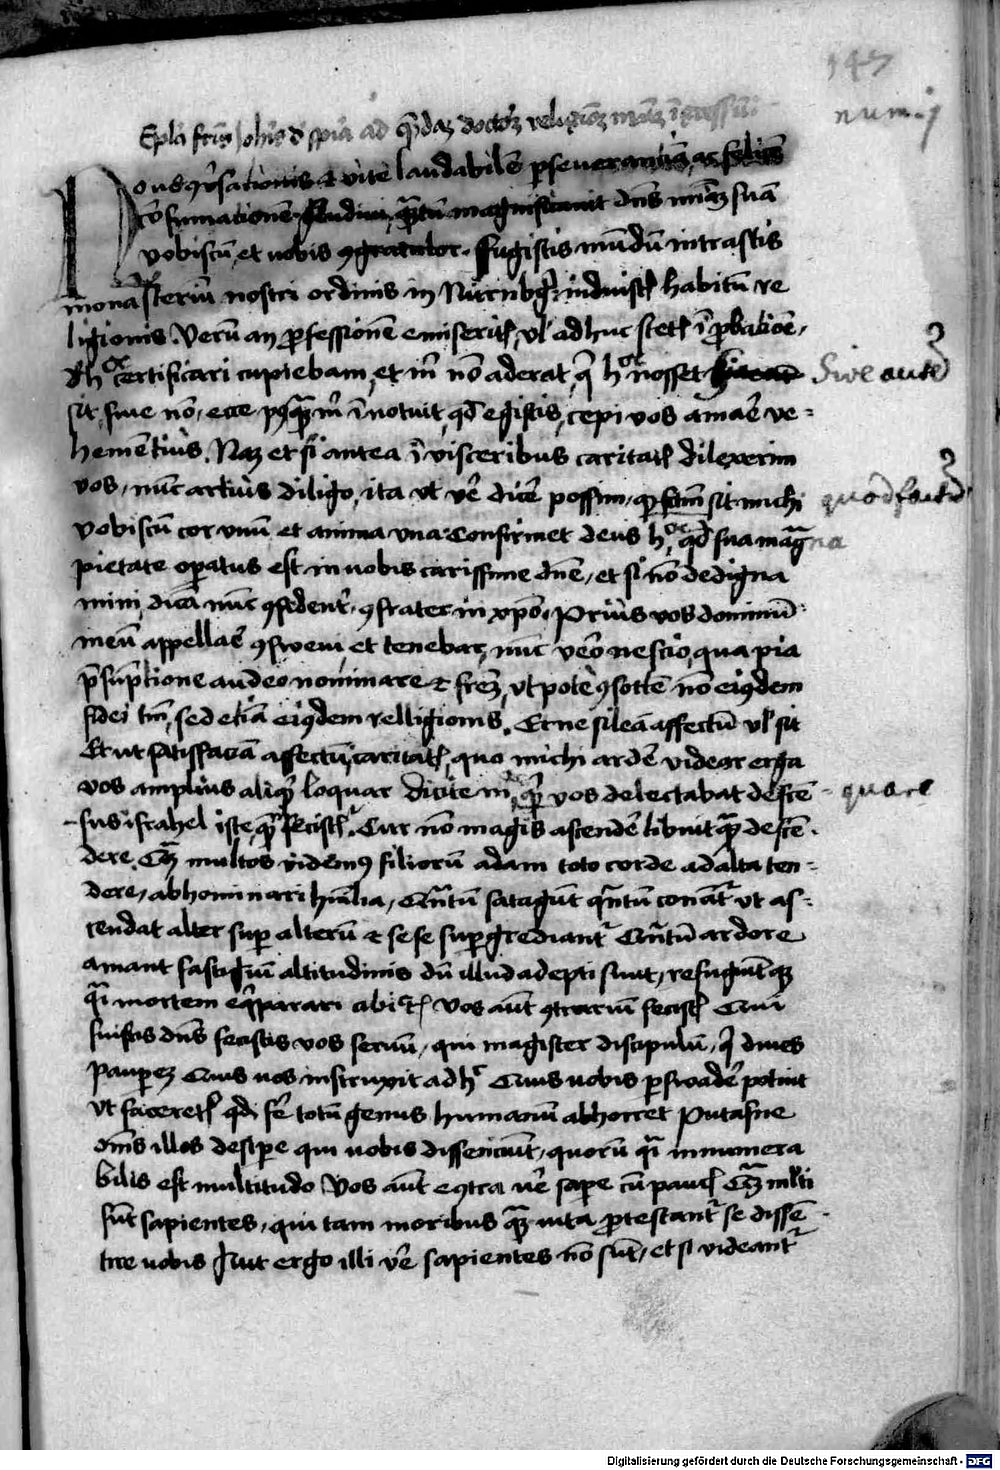 147
num. j
Epla fris Johis d spia ad quedaz doctorem religiosum
vite laudabilem perseverantiam ac felicem
consumationem magnificavit dns miam suā
vobiscū et vobis ꝯgratulor. Fugistis mūdū intrastis
monasteriū nostri ordinis in Nurnbg induistis habitū re
ligionis. Verū an ꝓfessionē emiseritis, vl adhuc stetis ī ꝓbatiōe,
certificari cupiebam, et m nō aderat, q hoc nosset
Sive autē
sit, sive nō, ecce ī notuit, qd egistis, cepi vos amare ve-
hementius. Naz et si antea ī visceribus caritatis dilexerim
vos, nūc artius diligo, ita vt vere dicere possim, sit michi
vobiscū cor vnū et anima vna. Confirmet deus hoc, qd sua magna
pietate opatus est in vobis carissime dne, et si nō dedigna
mini, dicā nūc ꝯfidenter, ꝯfrater in xpo. Prius vos dominū
meū appellare ꝯsuevi et tenebar, nūc vero nescio, qua pia
psūptione audeo nominare et frem, vtpote ꝯsortē nō eiꝰdem
fidei tm, sed etiā eiꝰdem relligionis. Et ne sileā affectū vl sit
Et ut satisfaciā affectui caritatis, quo michi ardere videor erga
vos amplius aliqd loquar Dicite m, qr vos delectabat descē-
quare
sus israhel iste, fecistis. Cur nō magis ascendere libuit qm descē-
dere. Cum multos videmꝰ filiorū adam toto corde ad alta ten-
dere, abhominari humilia, Quantū satagūt quantū conantur vt as-
cendat alter super alterū et sese supergrediantur Quantū ardore
amant fastigiū altitudinis dū illud adepti sunt, refugiūt
qi mortem eqparari Vos aūt ꝯtrariū fecistis Cum
fuistis dns fecistis vos servū, qui magister discipulū, q dives
pauperez Quis vos instruxit ad hoc Quis vobis persuadere potuit
vt faceretis qd fere totū genus humanū abhorret Putasne
oms illos desipere qui vobis dissenciūt, quorū qi innumera
bilis est multitudo Vos aūt ecōtra vere sapere cū paucis Quam mlti
sūt sapientes, qui tam moribus quam vita ꝓtestantur se dissē-
tire vobis Aut ergo illi vere sapientes nō sūt, et si videantur
Digitalisierung gefördert durch die Deutsche Forschungsgemeinschaft - DFG